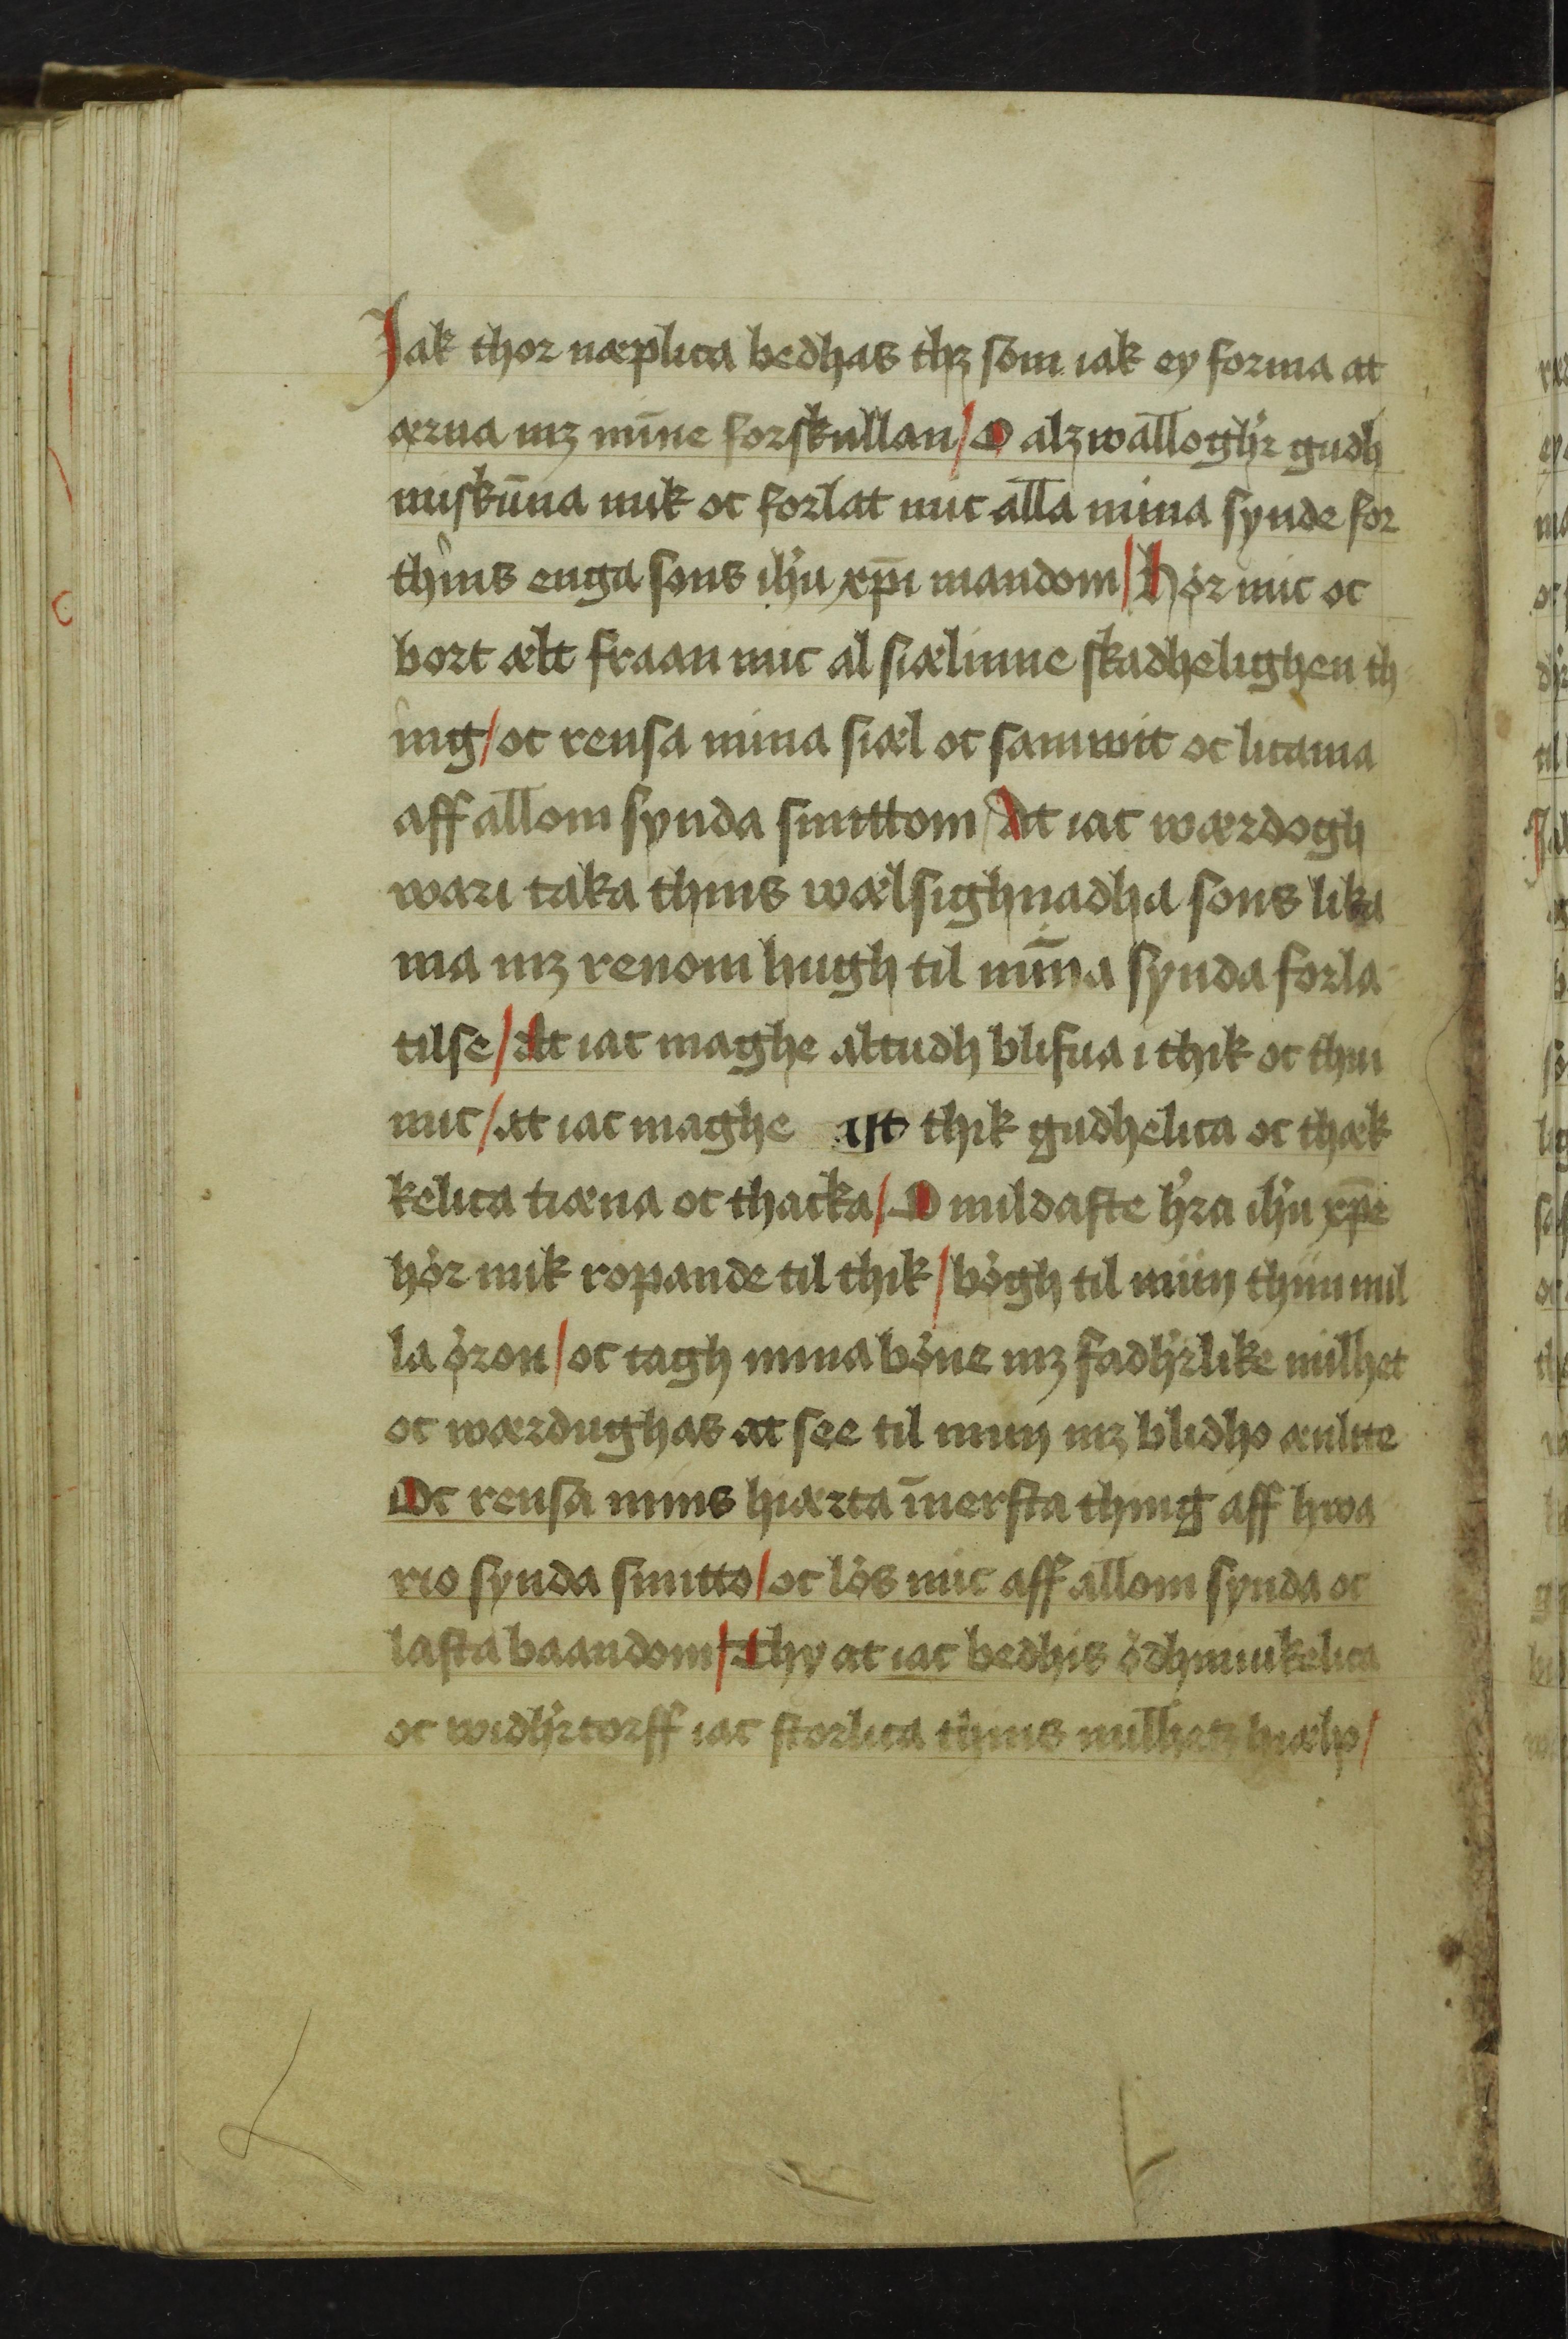 Jak thor næplica bedhas thꝫ som iak ey forma at
ærua mꝫ mīne forskullan/ O alzwalloghr̛ gudh
miskūna mik oc forlat mic alla mina synde for
thins enga sons ih̛u xp̄i mandom/ hör mic oc
bort ælt fraan mic al siælinne skadhelighen th
ing/ oc rensa mina siæl oc samwit oc licama
aff allom synda smittom At iac wærdogh
wari taka thins wælsighnadha sons lika
ma mꝫ renom hugh til mīna synda forla
tilse/ At iac maghe altidh blifua i thik oc thu i
mic/ at iac maghe ist thik gudhelica oc thæk
kelica tiæna oc thacka/ O mildaste h̛ra ih̛u xp̄e
hör mik ropande til thik/ bögh til min thiin mil
la öron/ oc tagh mina böne mꝫ fadhr̛like milhet
oc wærdughas at see til min mꝫ blidho ænlite
Oc rensa mins hiærta īnersta thing aff hwa
rio synda smitto/ oc lös mic aff allom synda oc
lasta baandom/ Thy at iac bedhis ödhmiukelica
oc widhr̛torff iac storlica thins millhetz hiælp/